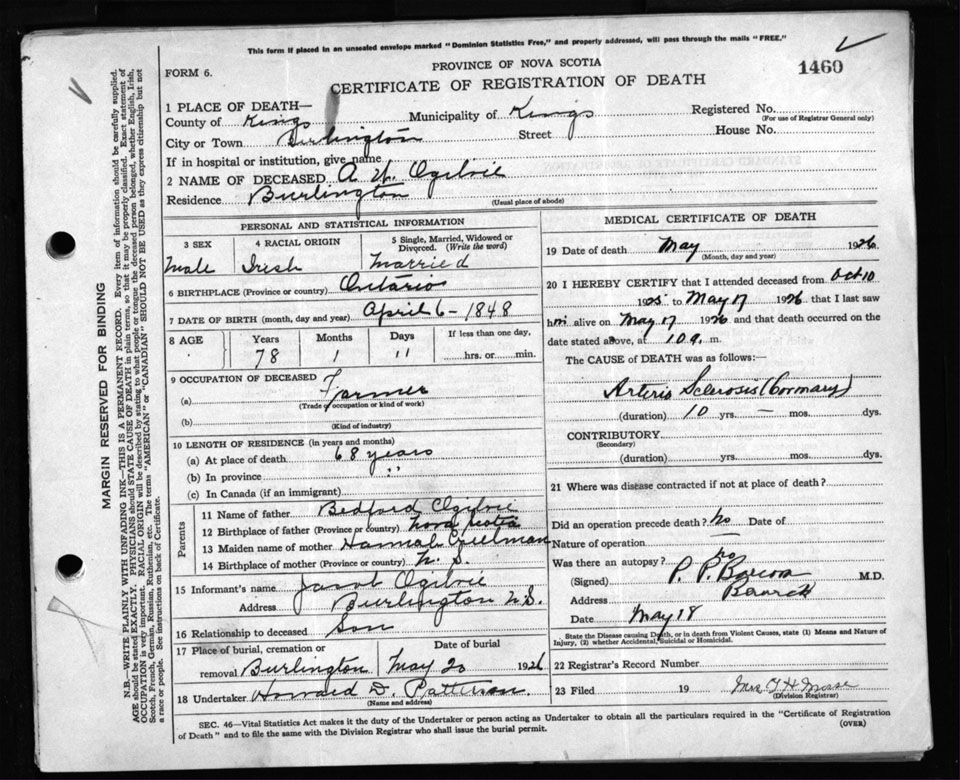 This form if placed in an unsealed envelope marked "Dominion Statistics Free," and property addressed, will pass through the mails "FREE."
PROVINCE OF NOVA SCOTIA
1460
FORM 6.
CERTIFICATE OF REGISTRATION OF DEATH
1 PLACE OF DEATH—
County of Kings Municipality of Kings Registered No.
(For use of Registrar General only)
City or Town Burlington Street House No.
If in hospital or institution, give name
2 NAME OF DECEASED A. W. Ogilvie
Residence Burlington
(Usual place of abode)
PERSONAL AND STATISTICAL INFORMATION
3 SEX 4 RACIAL ORIGIN 5 Single, Married, Widowed or Divorced. (Write the word)
Male Irish Married
6 BIRTHPLACE (Province or country) Ontario
7 DATE OF BIRTH (month, day and year) April 6 - 1848
8 AGE Years Months Days If less than one day,
78 1 11 hrs. or min.
9 OCCUPATION OF DECEASED
(a) Farmer
(Trade or occupation or kind of work)
(b)
(Kind of industry)
10 LENGTH OF RESIDENCE (in years and months)
(a) At place of death 68 years
(b) In province "
(c) In Canada (if an immigrant)
Parents
11 Name of father Bedford Ogilvie
12 Birthplace of father (Province or country) Nova Scotia
13 Maiden name of mother Hannah
14 Birthplace of mother (Province or country) N.S.
15 Informant's name Jacob Ogilvie
Address Burlington N.S.
16 Relationship to deceased Son
17 Place of burial, cremation or Date of burial
removal Burlington May 20 1926
18 Undertaker Howard D. Patterson
(Name and address)
MEDICAL CERTIFICATE OF DEATH
19 Date of death May 1926
(Month, day and year)
20 I HEREBY CERTIFY that I attended deceased from Oct 10
1925 to May 17 1926 that I last saw
him alive on May 17 1926 and that death occurred on
date stated above, at 10 a. m.
The CAUSE of DEATH was as follows:—
Arterio Sclerosis (Cornary)
(duration) 10 yrs. — mos. dys.
CONTRIBUTORY
(Secondary)
(duration) yrs. mos. dys.
21 Where was disease contracted if not at place of death?
Did an operation precede death? No Date of
Nature of operation —
Was there an autopsy? No
(Signed) P. P. M.D.
Address
Date May 18
State the Disease causing Death, or in death from Violent Causes, state (1) Means and Nature of
Injury, (2) whether Accidental, Suicidal or Homicidal.
22 Registrar's Record Number
23 Filed 19 Mrs. T H Morse
(Division Registrar)
SEC. 46—Vital Statistics Act makes it the duty of the Undertaker or person acting as Undertaker to obtain all the particulars required in the "Certificate of Registration
of Death" and to file the same with the Division Registrar who shall issue the burial permit.
(OVER)
MARGIN RESERVED FOR BINDING
N.B.—WRITE PLAINLY WITH UNFADING INK—THIS IS A PERMANENT RECORD. Every item of information should be carefully supplied.
AGE should be stated EXACTLY. PHYSICIANS should STATE CAUSE OF DEATH in plain terms, so that it may be properly classified. Exact statement of
OCCUPATION is very important. RACIAL ORIGIN will be described by stating to what people or tongue the deceased person belonged, whether English, Irish,
Scotch, French, German, Russian, Ruthenian, etc. The terms "AMERICAN" or "CANADIAN" SHOULD NOT BE USED as they express citizenship but not
a race or people. See instructions on back of Certificate.